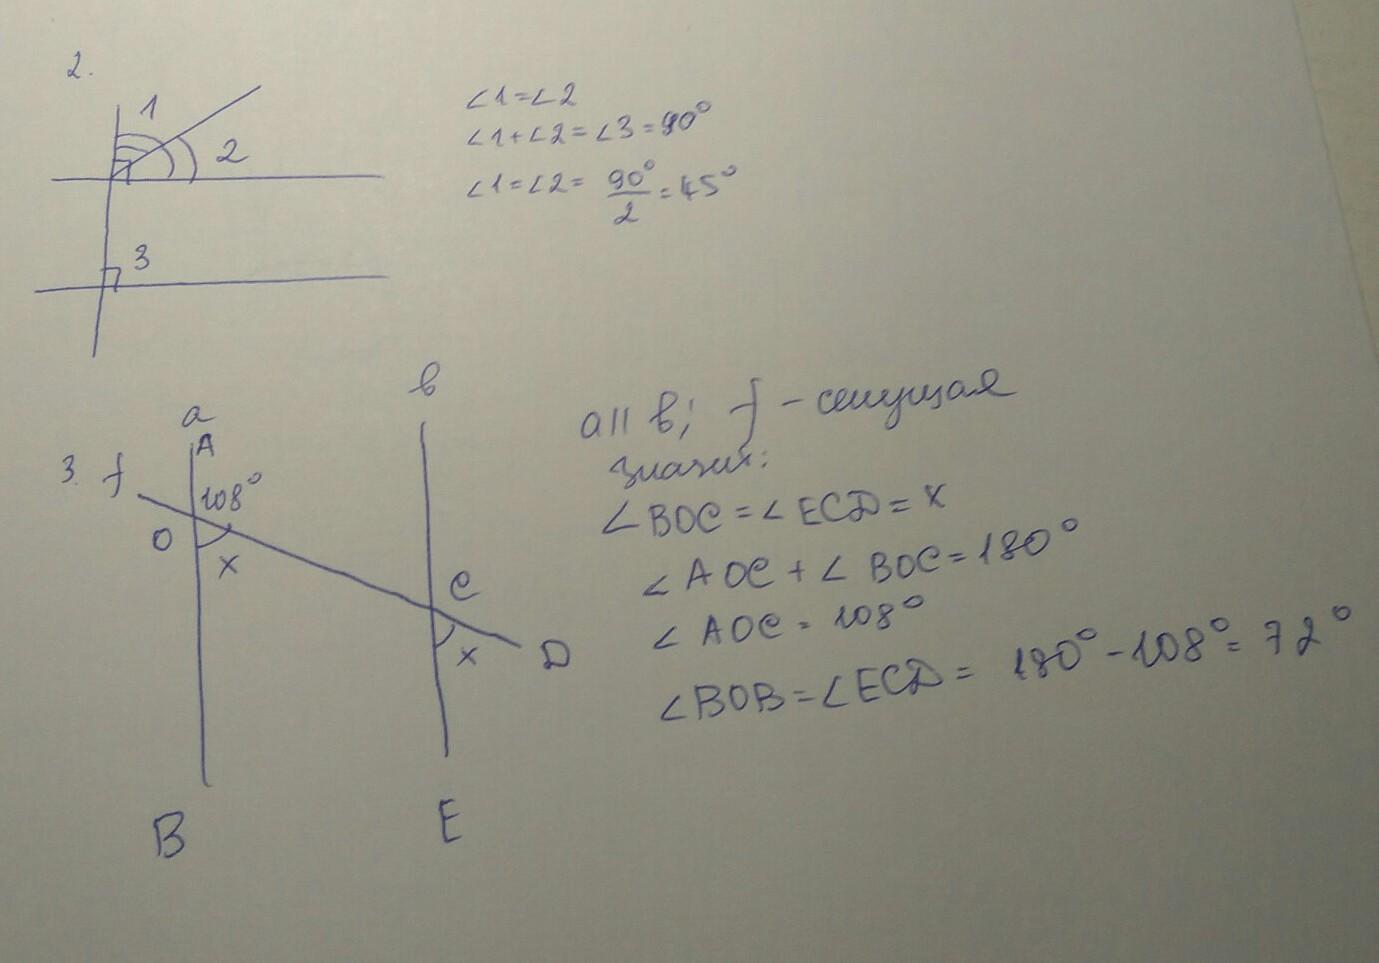 2.
1
2
3
∠1=∠2
∠1+∠2=∠3=90°
∠1=∠2= 90°/2 =45°
3. f
a
A
108°
O
x
B
в
C
x
D
E
a∥в; f – секущая
значит:
∠BOC=∠ECD=x
∠AOC+∠BOC=180°
∠AOC=108°
∠BOB=∠ECD= 180°-108°=72°